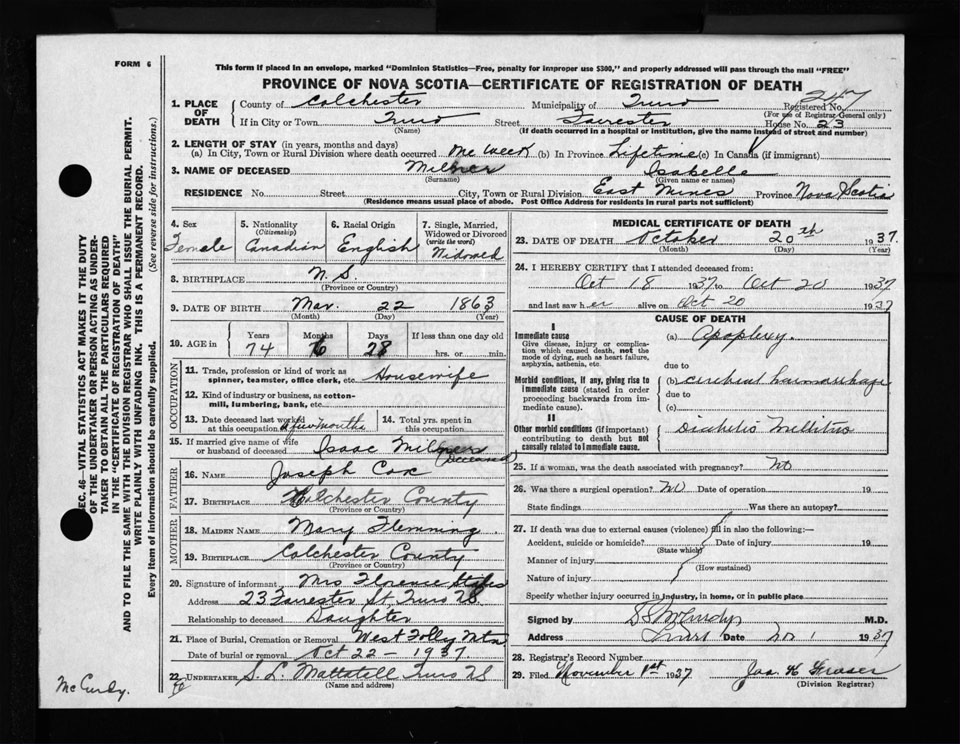 FORM 6
This form if placed in an envelope, marked "Dominion Statistics—Free, penalty for improper use $300," and properly addressed will pass through the mail "FREE"
PROVINCE OF NOVA SCOTIA—CERTIFICATE OF REGISTRATION OF DEATH
247
1. PLACE OF DEATH County of Colchester Municipality of Truro Registered No.
(For use of Registrar-General only)
If in City or Town Truro Street Forrester House No. 23
(Name) (If death occurred in a hospital or institution, give the name instead of street and number)
2. LENGTH OF STAY (in years, months and days)
(a) In City, Town or Rural Division where death occurred One Week (b) In Province Lifetime (c) In Canada (if immigrant)
3. NAME OF DECEASED Milner Isabelle
(Surname) (Given name or names)
RESIDENCE No. Street City, Town or Rural Division East Mines Province Nova Scotia
(Residence means usual place of abode. Post Office Address for residents in rural parts not sufficient)
4. Sex Female
5. Nationality (Citizenship) Canadian
6. Racial Origin English
7. Single, Married, Widowed or Divorced (write the word) Widowed
8. BIRTHPLACE N. S.
(Province or Country)
9. DATE OF BIRTH Mar. 22 1863
(Month) (Day) (Year)
10. AGE in Years Months Days If less than one day old
74 6 28 hrs. or min.
OCCUPATION
11. Trade, profession or kind of work as spinner, teamster, office clerk, etc. Housewife
12. Kind of industry or business, as cotton-mill, lumbering, bank, etc.
13. Date deceased last worked at this occupation a few months
14. Total yrs. spent in this occupation.
15. If married give name of wife or husband of deceased Isaac Milner (Deceased)
FATHER
16. NAME Joseph Cox
17. BIRTHPLACE Colchester County
(Province or Country)
MOTHER
18. MAIDEN NAME Mary Flemming
19. BIRTHPLACE Colchester County
(Province or Country)
20. Signature of informant Mrs Florence
Address 23 Forrester St, Truro NS.
Relationship to deceased Daughter
21. Place of Burial, Cremation or Removal West Folly Mtn
Date of burial or removal Oct 22 - 1937
22. UNDERTAKER S. L. Mattatall Truro NS
(Name and address)
MEDICAL CERTIFICATE OF DEATH
23. DATE OF DEATH October 20th 1937.
(Month) (Day) (Year)
24. I HEREBY CERTIFY that I attended deceased from:
Oct 18 1937 to Oct 20 1937
and last saw her alive on Oct 20 1937
CAUSE OF DEATH
I
Immediate cause
Give disease, injury or complication which caused death, not the mode of dying, such as heart failure, asphyxia, asthenia, etc.
(a) Apoplexy.
due to
Morbid conditions, if any, giving rise to immediate cause (stated in order proceeding backwards from immediate cause).
(b) cerebral haemorrhage
due to
(c)
II
Other morbid conditions (if important) contributing to death but not causally related to immediate cause.
Diabetis Mellitus
25. If a woman, was the death associated with pregnancy? No
26. Was there a surgical operation? No Date of operation 19
State findings Was there an autopsy?
27. If death was due to external causes (violence) fill in also the following:—
Accident, suicide or homicide? Date of injury 19
(State which)
Manner of injury
(How sustained)
Nature of injury
Specify whether injury occurred in industry, in home, or in public place
Signed by McCurdy M.D.
Address Truro Date Nov 1 1937
28. Registrar's Record Number
29. Filed November 1st 1937 Jas. K Fraser
(Division Registrar)
SEC. 46—VITAL STATISTICS ACT MAKES IT THE DUTY
OF THE UNDERTAKER OR PERSON ACTING AS UNDER-
TAKER TO OBTAIN ALL THE PARTICULARS REQUIRED
IN THE "CERTIFICATE OF REGISTRATION OF DEATH"
AND TO FILE THE SAME WITH THE DIVISION REGISTRAR WHO SHALL ISSUE THE BURIAL PERMIT.
WRITE PLAINLY WITH UNFADING INK. THIS IS A PERMANENT RECORD.
Every item of information should be carefully supplied. (See reverse side for instructions.)
McCurdy.